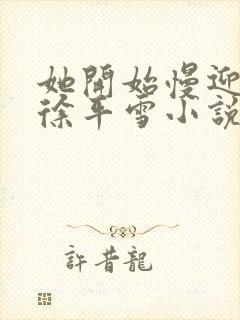 她開始慢迎
徐平雪小說
許昔龍